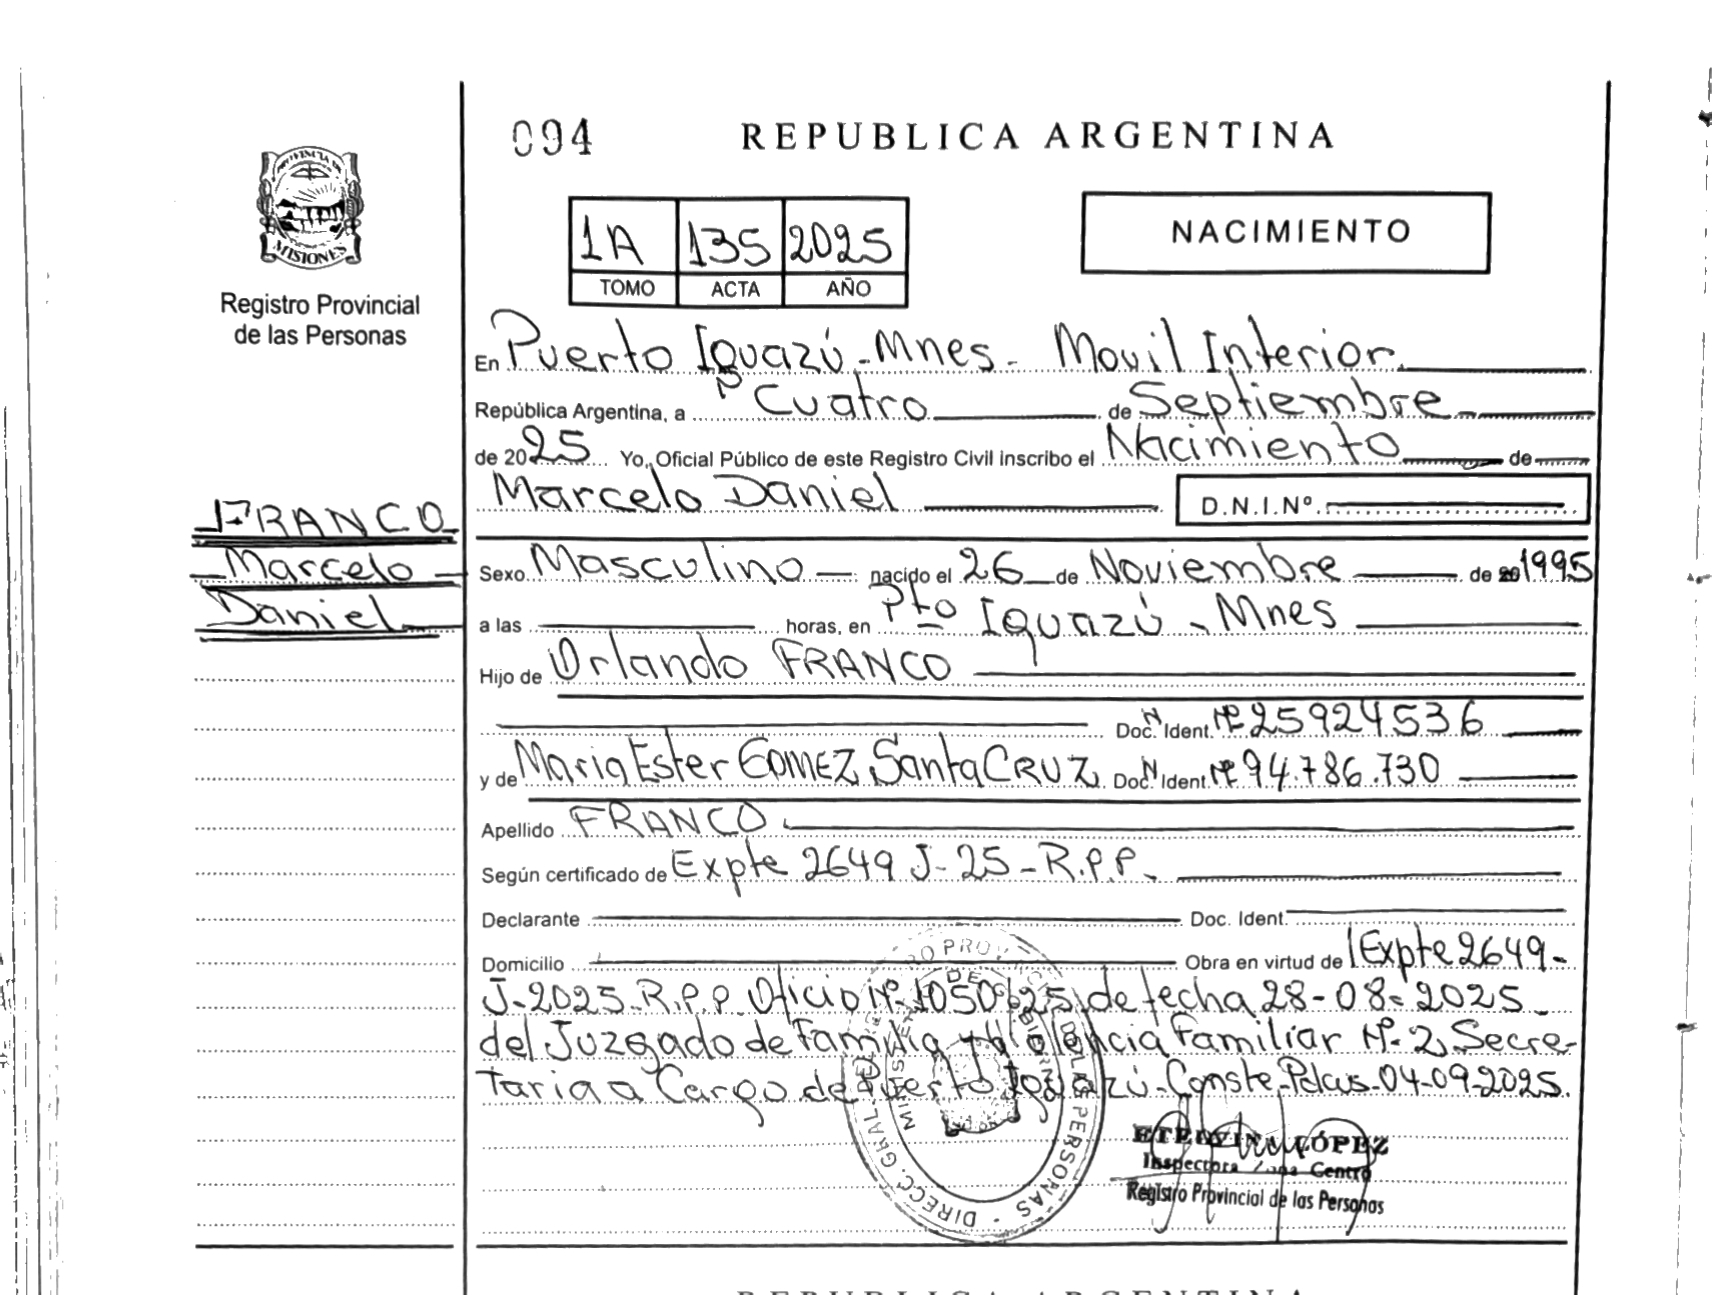 094
REPUBLICA ARGENTINA
PROVINCIA DE
MISIONES
Registro Provincial
de las Personas
1A 135 2025
TOMO ACTA AÑO
NACIMIENTO
En Puerto Iguazú - Mnes - Movil Interior
República Argentina, a Cuatro de Septiembre
de 2025 Yo, Oficial Público de este Registro Civil inscribo el Nacimiento de
Marcelo Daniel D.N.I.Nº
FRANCO
Marcelo
Daniel
Sexo Masculino nacido el 26 de Noviembre de 1995
a las horas, en Pto Iguazú - Mnes
Hijo de Orlando FRANCO
Doc. N Ident. Nº 25924536
y de Maria Ester GOMEZ SantaCRUZ Doc. N Ident. Nº 94.786.730
Apellido FRANCO
Según certificado de Expte 2649 J-25-R.P.P.
Declarante Doc. Ident.
Domicilio Obra en virtud de Expte 2649-
J-2025-R.P.P. Oficio Nº 1050/25 de fecha 28-08-2025
del Juzgado de Familia y Violencia Familiar Nº 2, Secre-
taria a Cargo de Puerto Iguazú-Conste-Pdas-04-09-2025.
DIRECC. GRAL. DEL REGISTRO PROVINCIAL DE LAS PERSONAS
MINISTERIO DE GOBIERNO
ETELVINA LÓPEZ
Inspectora Zona Centro
Registro Provincial de las Personas
REPUBLICA ARGENTINA